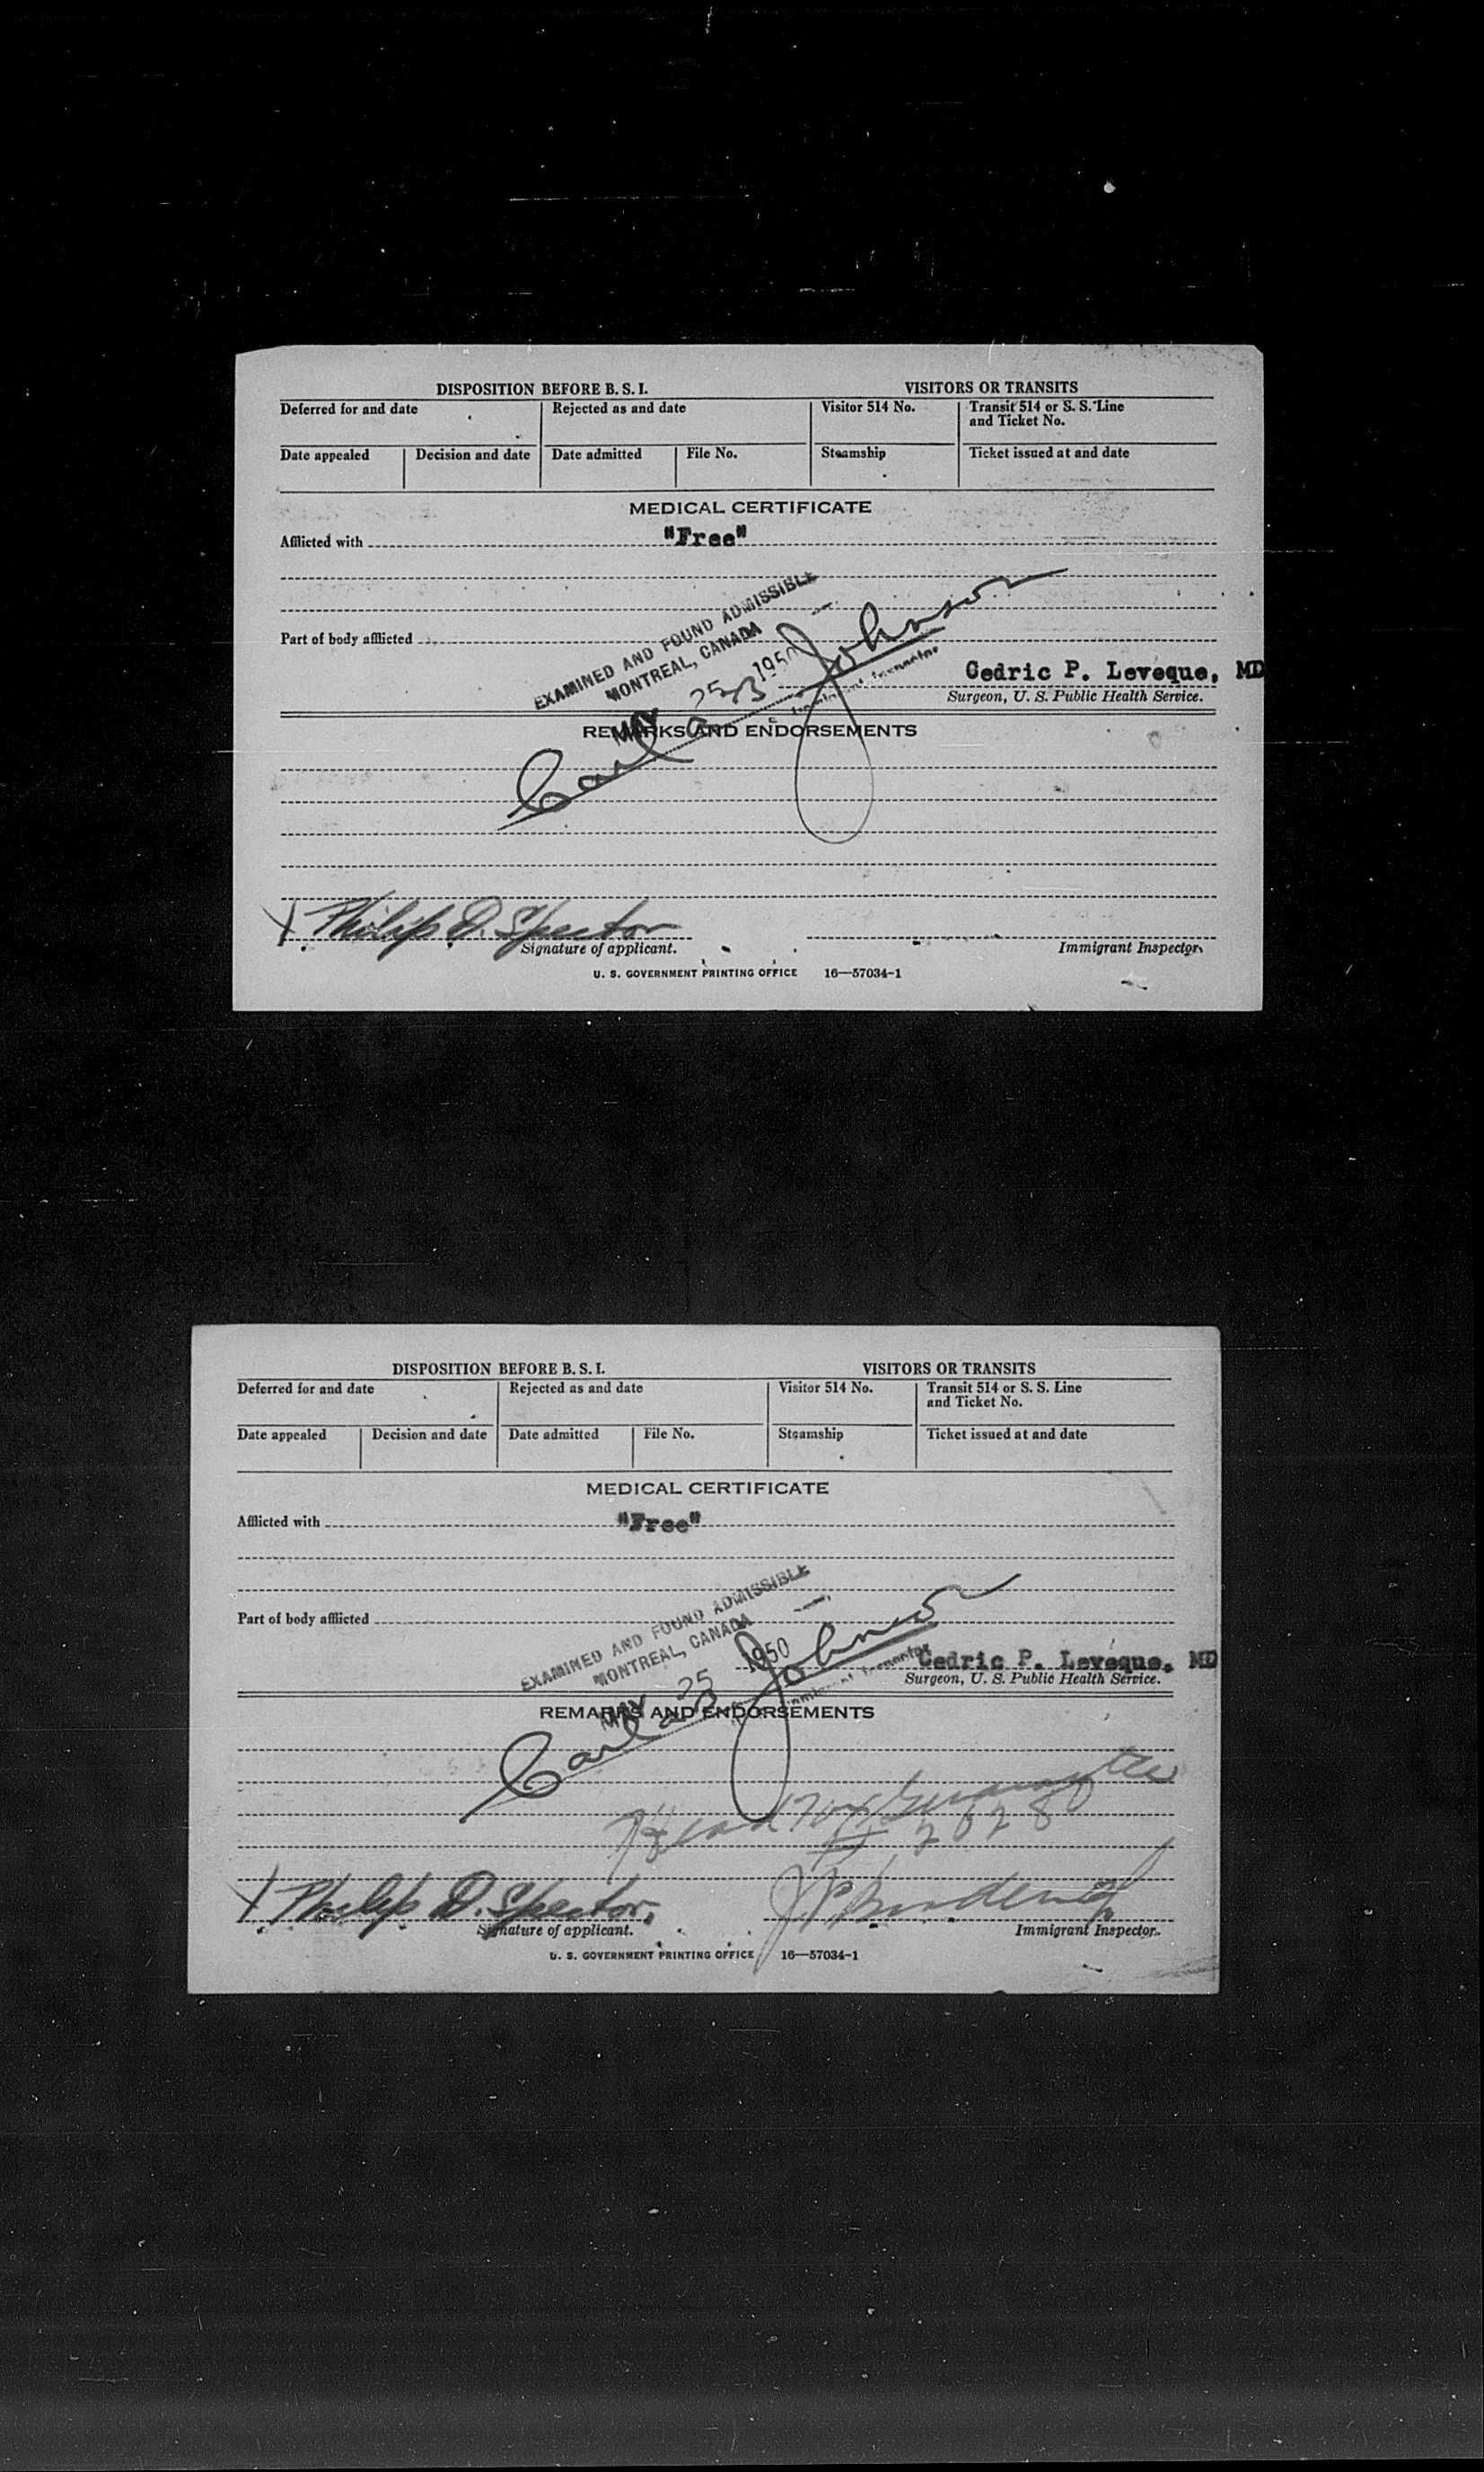 DISPOSITION BEFORE B. S. I. VISITORS OR TRANSITS
Deferred for and date Rejected as and date Visitor 514 No. Transit 514 or S. S. Line
and Ticket No.
Date appealed Decision and date Date admitted File No. Steamship Ticket issued at and date
MEDICAL CERTIFICATE
Afflicted with "Free"
EXAMINED AND FOUND ADMISSIBLE
MONTREAL, CANADA
Part of body afflicted
MAY 25 1950
Carl B Johnson
Immigrant Inspector
Cedric P. Leveque, MD
Surgeon, U. S. Public Health Service.
REMARKS AND ENDORSEMENTS
X Philip D. Spector
Signature of applicant. Immigrant Inspector.
U. S. GOVERNMENT PRINTING OFFICE 16—57034-1
DISPOSITION BEFORE B. S. I. VISITORS OR TRANSITS
Deferred for and date Rejected as and date Visitor 514 No. Transit 514 or S. S. Line
and Ticket No.
Date appealed Decision and date Date admitted File No. Steamship Ticket issued at and date
MEDICAL CERTIFICATE
Afflicted with "Free"
EXAMINED AND FOUND ADMISSIBLE
MONTREAL, CANADA
Part of body afflicted
MAY 25 1950
Carl B Johnson
Immigrant Inspector
Cedric P. Leveque, MD
Surgeon, U. S. Public Health Service.
REMARKS AND ENDORSEMENTS
Head Tax
2628
X Philip D. Spector.
Signature of applicant. Immigrant Inspector.
U. S. GOVERNMENT PRINTING OFFICE 16—57034-1